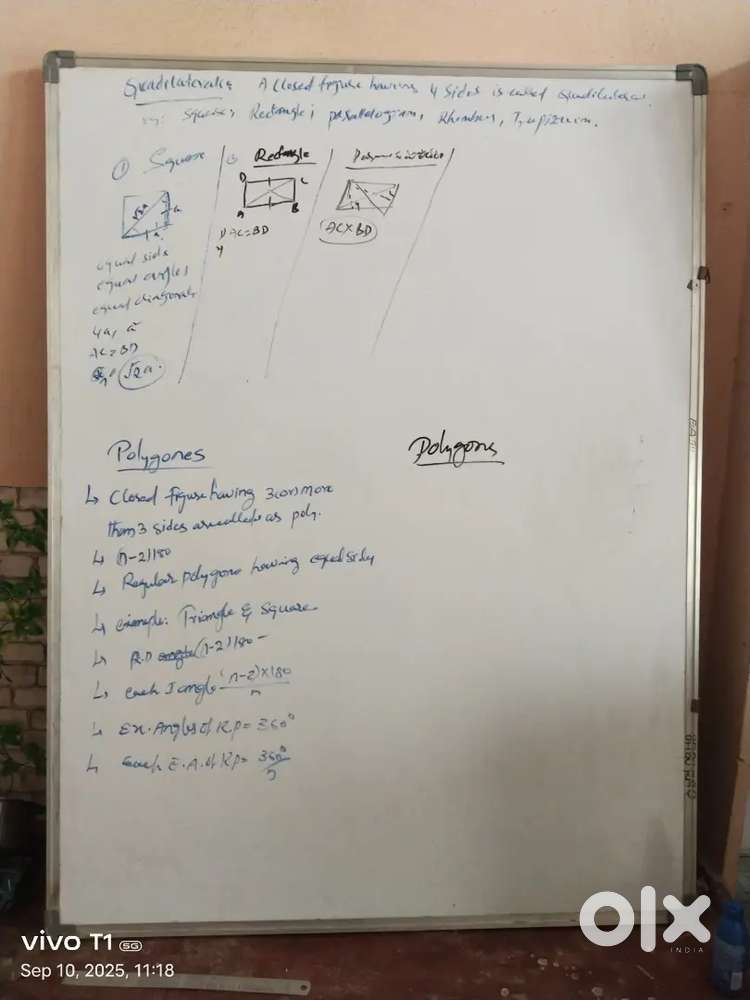 Quadilaterals A closed figure having 4 sides is called Quadilateral.
eg: Square, Rectangle, parallelogram, Rhombus, Trapizium.
① Square
√2a
a
a
equal side
equal angles
equal diagonals
4a, a²
AC = BD
√2a
Rectangle
D C
A B
AC = BD
AC × BD
Polygones
↳ Closed figure having 3(or) more
than 3 sides are called as poly.
↳ (n-2)180
↳ Regular polygone having equal sides
↳ example: Triangle & Square
↳ R.P (n-2)180
↳ each I angle (n-2)×180
n
↳ Ex. Angles of R.P = 360°
↳ each E.A. of R.P = 360°
n
Polygons
vivo T1 5G
Sep 10, 2025, 11:18
olx
INDIA